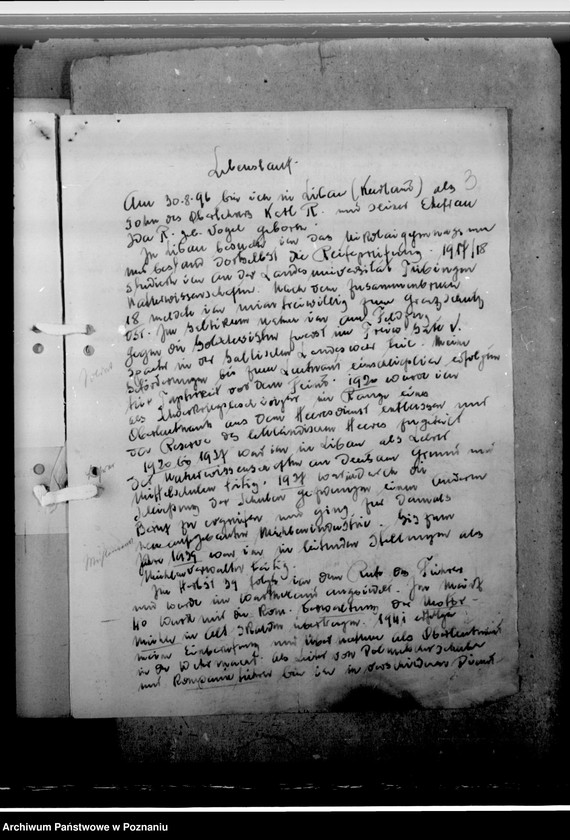 Lebenslauf.
3
Am 30.8.96 bin ich in Libau (Kurland) als
Sohn des Oberlehrers Karl R. und seiner Ehefrau
Ida R. geb. Vogel geboren.
In Libau besuchte ich das Nikolaigymnasium
und bestand dortselbst die Reifeprüfung. 1917/18
studierte ich an der Landesuniversität Tübingen
Naturwissenschaften. Nach dem Zusammenbruch
18 meldete ich mich freiwillig zum Grenzschutz
Ost. Im Baltikum nahm ich am Feldzug
gegen die Bolschewisten zuerst im
später in der Baltischen Landeswehr teil. Meine
Beförderungen bis zum Leutnant einschließlich erfolgten
für Tapferkeit vor dem Feind. 1920 wurde ich
als im Range eines
Oberleutnants aus dem Heeresdienst entlassen und
der Reserve des Lettländischen Heeres zugezählt
1920 bis 1937 war ich in Libau als Lehrer
der Naturwissenschaften an Deutschen Grund und
Mittelschulen tätig. 1937 wurde ich durch
der Schulen gezwungen einen anderen
Beruf zu ergreifen und ging zur damals
neu aufgebauten Mühlenindustrie. Bis zum
Jahre 1939 war ich in leitenden Stellungen als
Mühlenverwalter tätig.
Im Herbst 39 folgte ich dem Rufe des Führers
und wurde im Wartheland angesiedelt. Im März
40 wurde mir die Kom. Verwaltung der Motor-
mühle in Alt übertragen. 1941 erfolgte
meine Einberufung und Übernahme als Oberleutnant
in die Wehrmacht. Als Leiter von
und Kompanieführer bin ich in verschiedenen